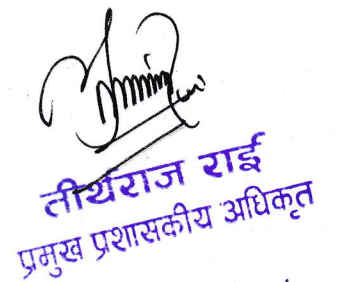 तीर्थराज राई
प्रमुख प्रशासकीय अधिकृत